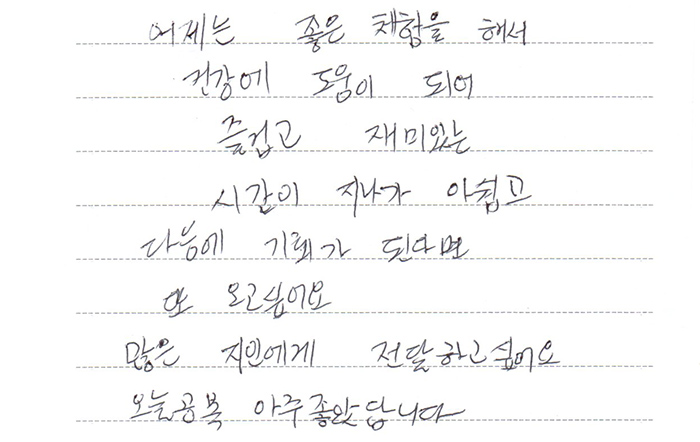 어제는 좋은 체험을 해서
건강에 도움이 되어
즐겁고 재미있는
시간이 지나가 아쉽고
다음에 기회가 된다면
또 오고싶어요
많은 지인에게 전달하고싶어요
오늘공복 아주좋았답니다